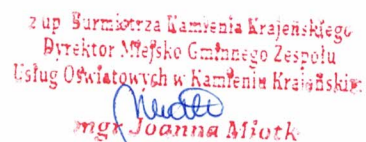 z up Burmistrza Kamienia Krajeńskiego
Dyrektor Miejsko Gminnego Zespołu
Usług Oświatowych w Kamieniu Krajeńskim
mgr Joanna Miotk